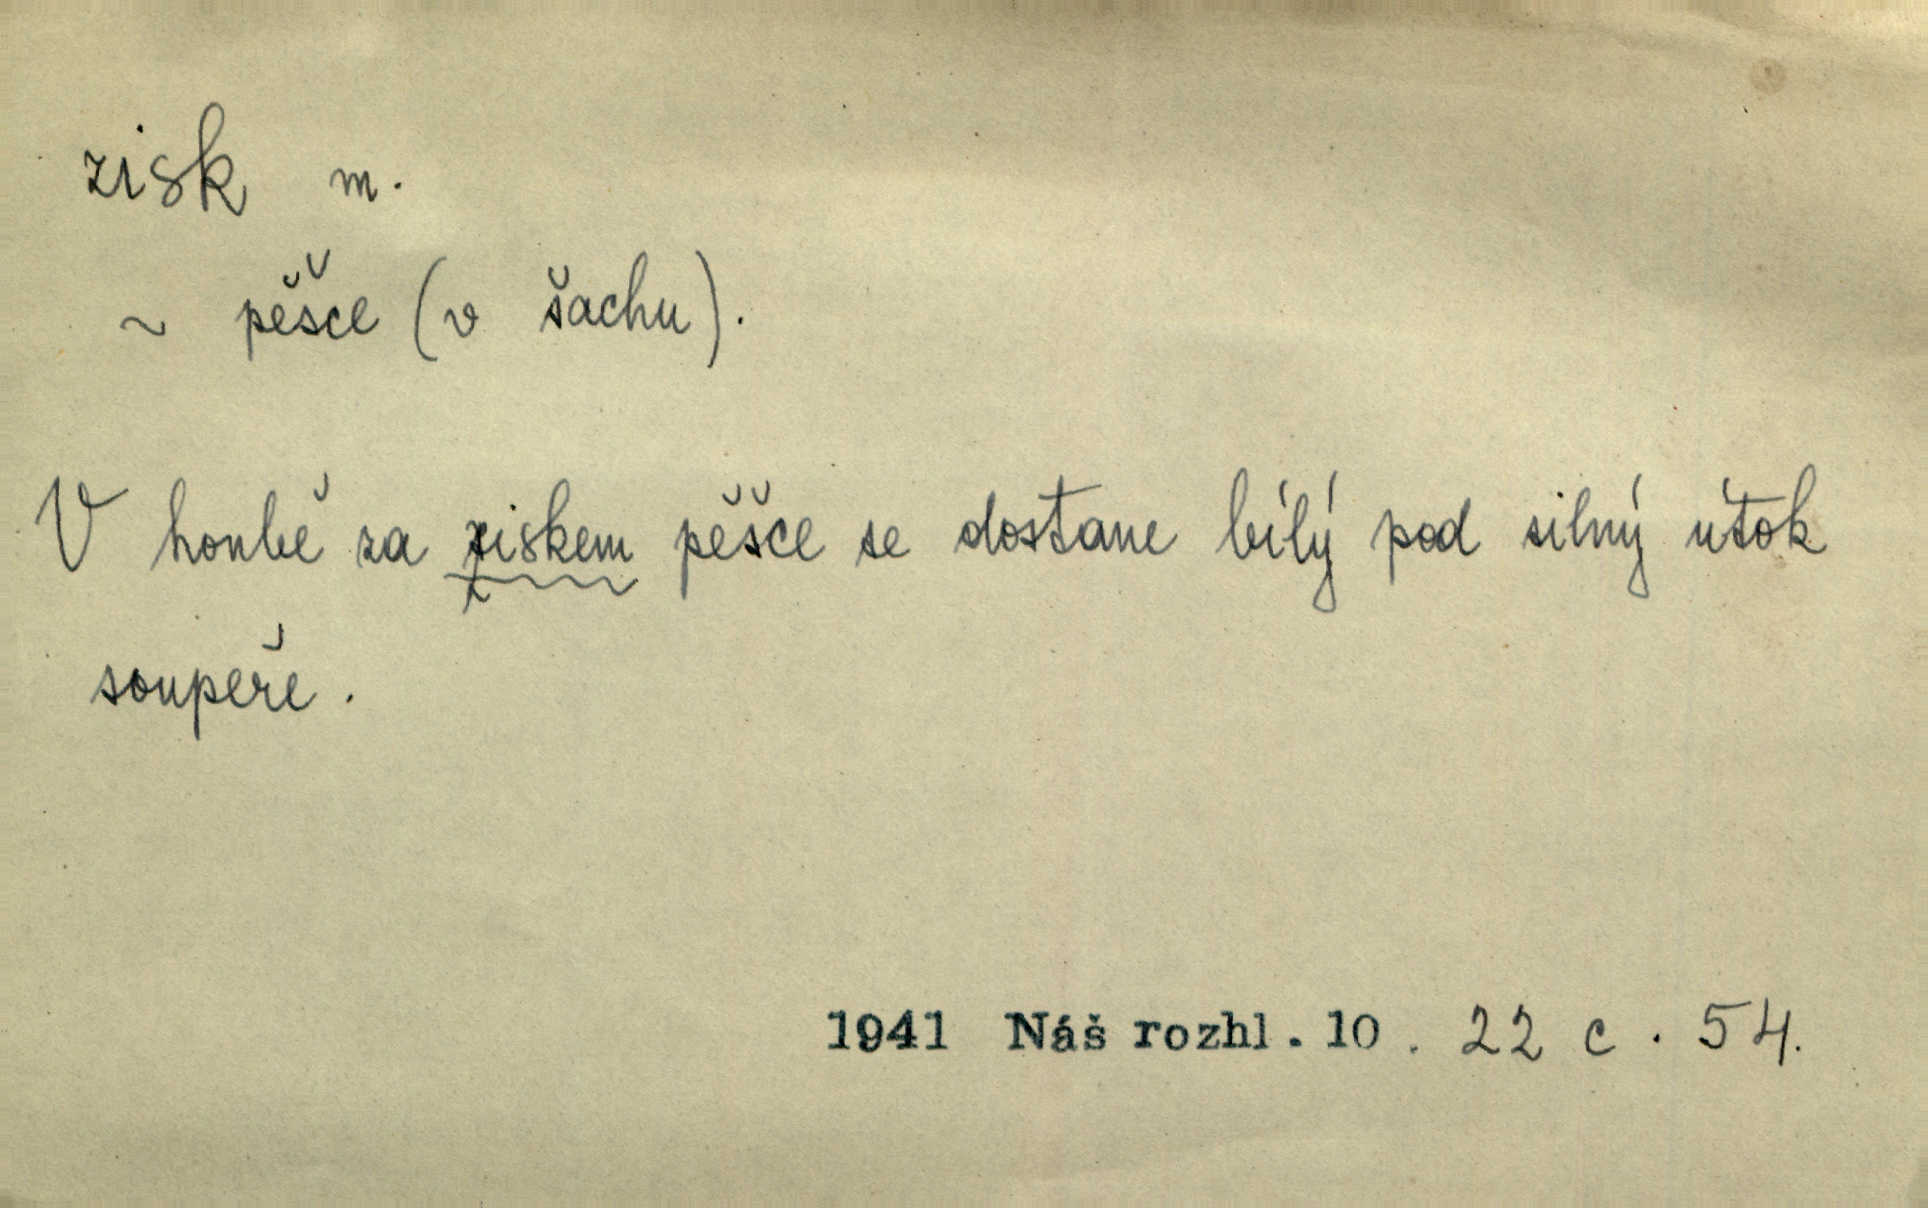 zisk m.
~ pěšce (v šachu).
V honbě za ziskem pěšce se dostane bílý pod silný útok
soupeře.
1941 Náš rozhl. 10. 22 c. 54.